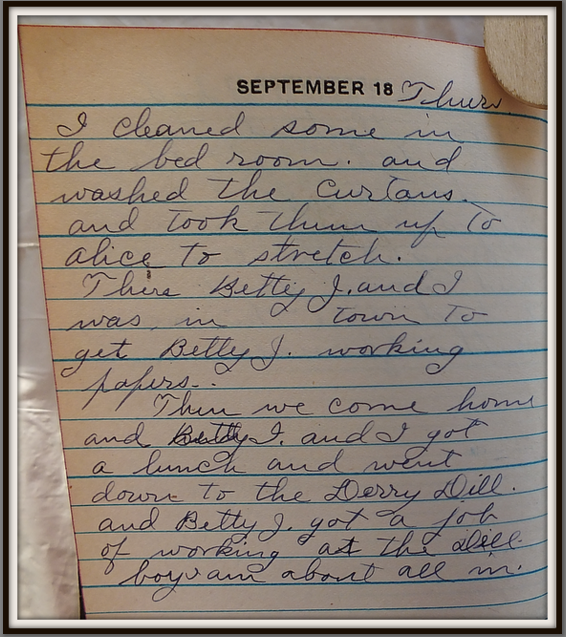 SEPTEMBER 18 Thurs
I cleaned some in
the bed room. and
washed the Curtans.
and took them up to
alice to stretch.
Then Betty J. and I
was in town to
get Betty J. working
papers.
Then we come home
and Betty J. and I got
a lunch and went
down to the Derry Dill.
and Betty J. got a job
of working at the Dill.
boy am about all in.